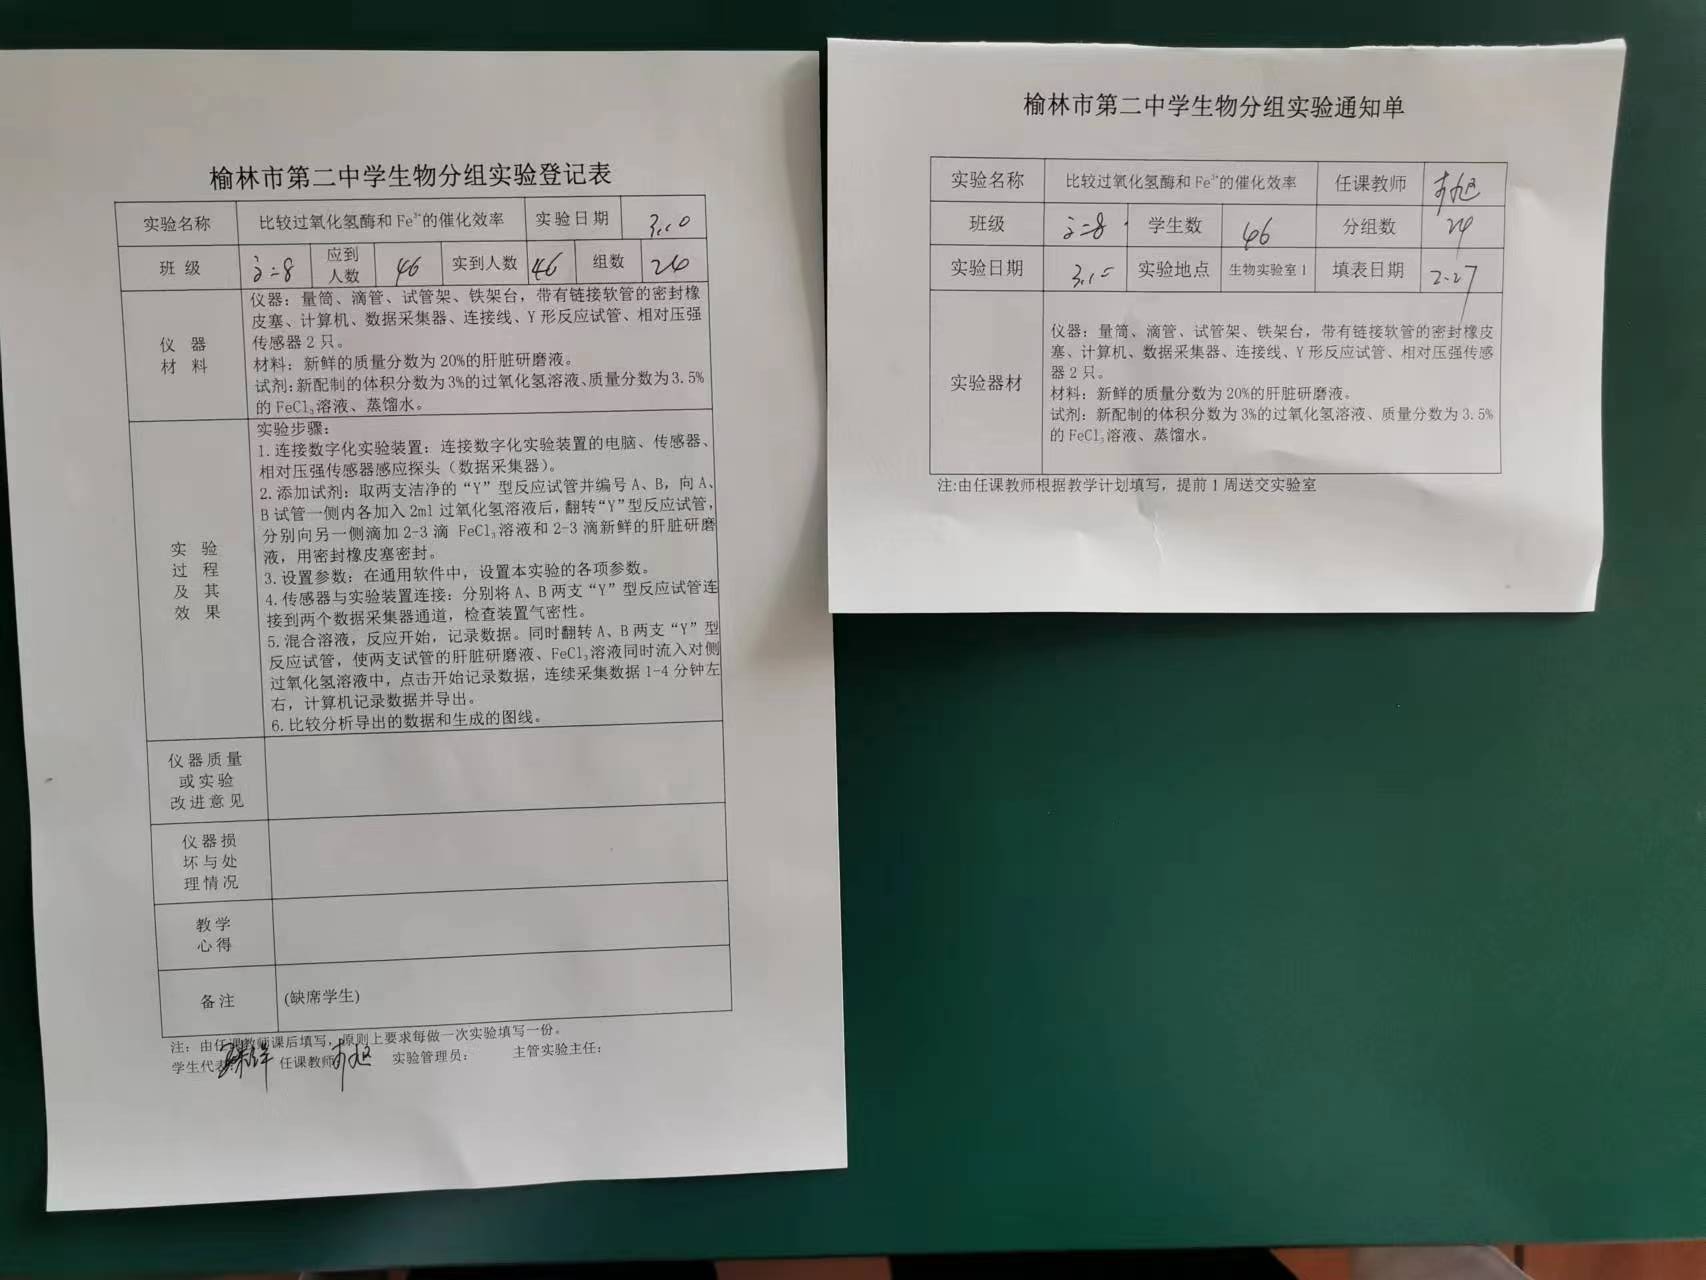 榆林市第二中学生物分组实验登记表
实验名称 比较过氧化氢酶和Fe³⁺的催化效率 实验日期 3.10
班级 高二8 应到人数 46 实到人数 46 组数 24
仪器材料
仪器：量筒、滴管、试管架、铁架台，带有链接软管的密封橡
皮塞、计算机、数据采集器、连接线、Y形反应试管、相对压强
传感器2只。
材料：新鲜的质量分数为20%的肝脏研磨液。
试剂：新配制的体积分数为3%的过氧化氢溶液、质量分数为3.5%
的FeCl₃溶液、蒸馏水。
实验过程及其效果
实验步骤：
1.连接数字化实验装置：连接数字化实验装置的电脑、传感器、
相对压强传感器感应探头（数据采集器）。
2.添加试剂：取两支洁净的“Y”型反应试管并编号A、B，向A、
B试管一侧内各加入2ml过氧化氢溶液后，翻转“Y”型反应试管，
分别向另一侧滴加2-3滴 FeCl₃溶液和2-3滴新鲜的肝脏研磨
液，用密封橡皮塞密封。
3.设置参数：在通用软件中，设置本实验的各项参数。
4.传感器与实验装置连接：分别将A、B两支“Y”型反应试管连
接到两个数据采集器通道，检查装置气密性。
5.混合溶液，反应开始，记录数据。同时翻转A、B两支“Y”型
反应试管，使两支试管的肝脏研磨液、FeCl₃溶液同时流入对侧
过氧化氢溶液中，点击开始记录数据，连续采集数据1-4分钟左
右，计算机记录数据并导出。
6.比较分析导出的数据和生成的图线。
仪器质量
或实验
改进意见
仪器损
坏与处
理情况
教学
心得
备注 (缺席学生)
注：由任课教师课后填写，原则上要求每做一次实验填写一份。
学生代表： 任课教师 实验管理员： 主管实验主任：
榆林市第二中学生物分组实验通知单
实验名称 比较过氧化氢酶和Fe³⁺的催化效率 任课教师
班级 高二8 学生数 46 分组数 24
实验日期 实验地点 生物实验室1 填表日期 2.27
实验器材
仪器：量筒、滴管、试管架、铁架台，带有链接软管的密封橡皮
塞、计算机、数据采集器、连接线、Y形反应试管、相对压强传感
器2只。
材料：新鲜的质量分数为20%的肝脏研磨液。
试剂：新配制的体积分数为3%的过氧化氢溶液、质量分数为3.5%
的FeCl₃溶液、蒸馏水。
注:由任课教师根据教学计划填写，提前1周送交实验室